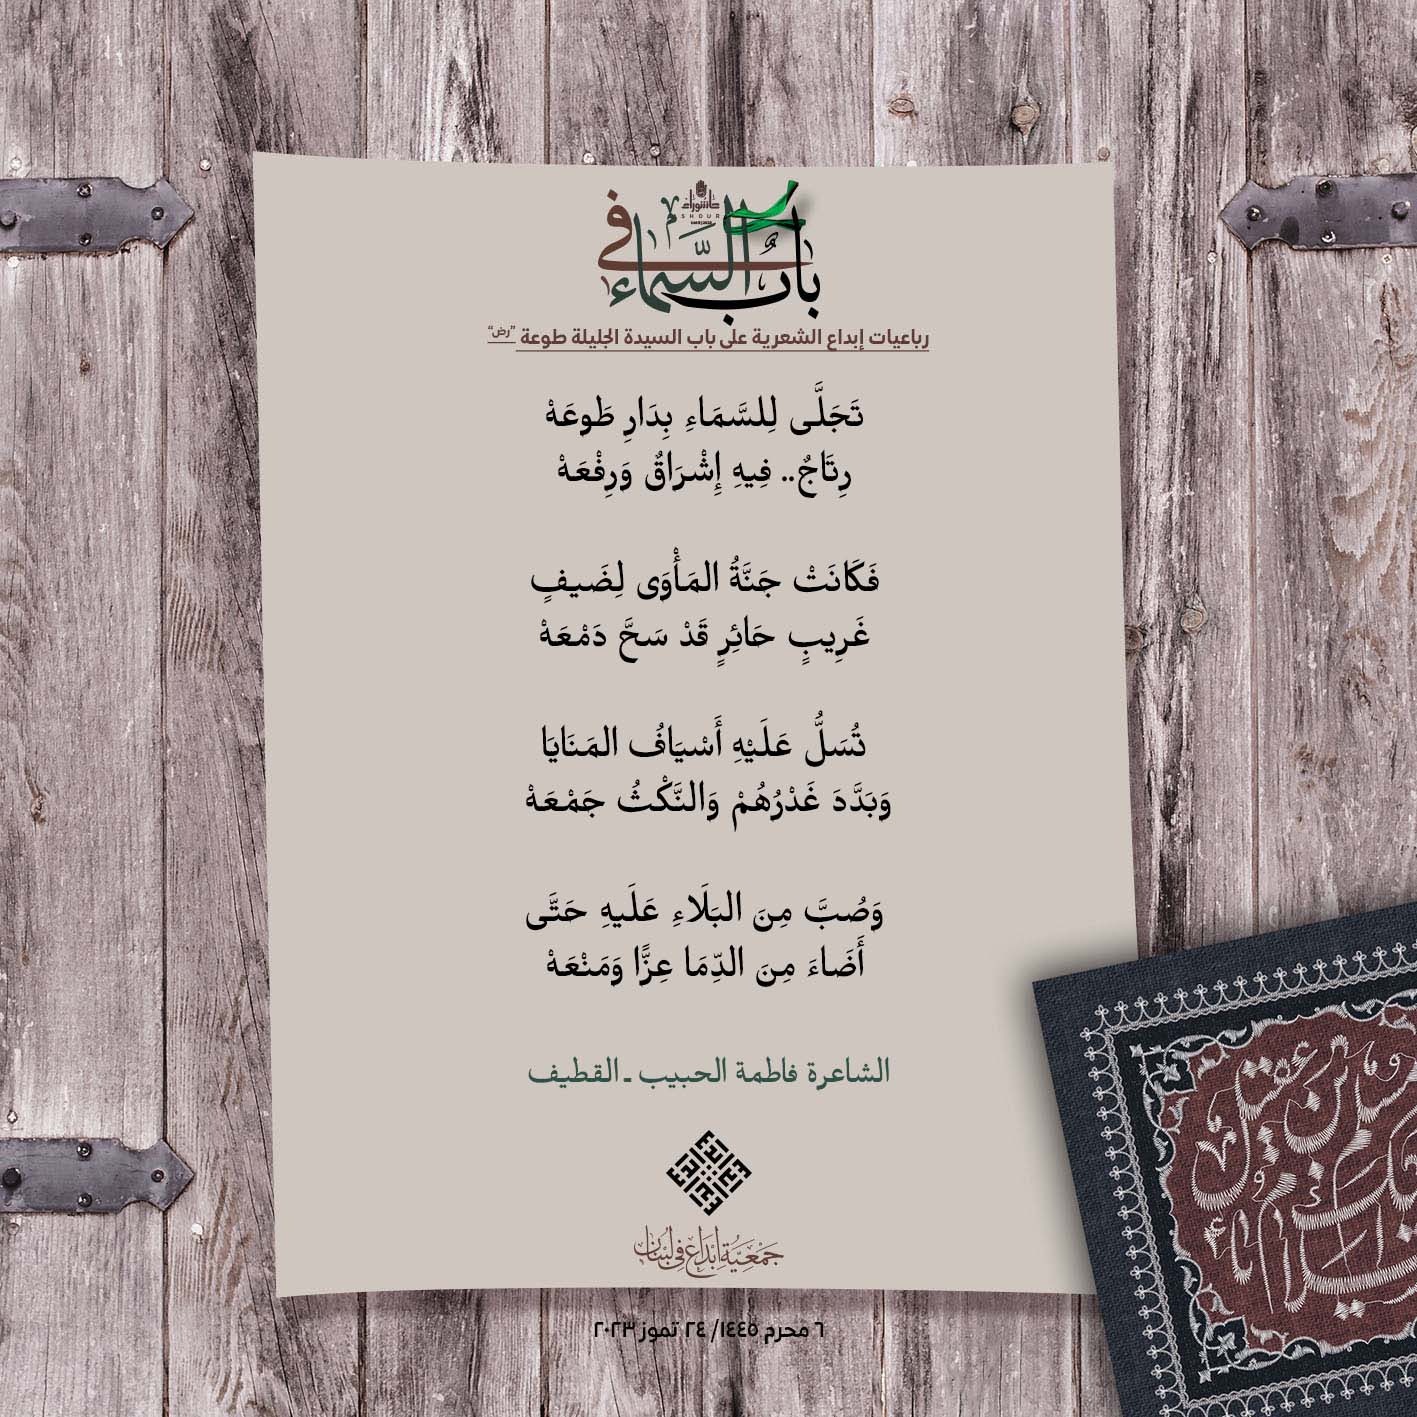 عاشوراء
باب في السَّماء
رباعيات إبداع الشعرية على باب السيدة الجليلة طوعة "رض"
تَجَلَّى لِلسَّمَاءِ بِدَارِ طَوعَهْ
رِتَاجٌ.. فِيهِ إِشْرَاقٌ وَرِفْعَهْ
فَكَانَتْ جَنَّةُ المَأْوَى لِضَيفٍ
غَرِيبٍ حَائِرٍ قَدْ سَحَّ دَمْعَهْ
تُسَلُّ عَلَيْهِ أَسْيَافُ المَنَايَا
وَبَدَّدَ غَدْرُهُمْ وَالنَّكْثُ جَمْعَهْ
وَصُبَّ مِنَ البَلَاءِ عَلَيهِ حَتَّى
أَضَاءَ مِنَ الدِّمَا عِزًّا وَمَنْعَهْ
الشاعرة فاطمة الحبيب ـ القطيف
جَمْعِيَّةُ إِبْدَاع فِي لُبْنَان
٦ محرم ١٤٤٥/ ٢٤ تموز ٢٠٢٣